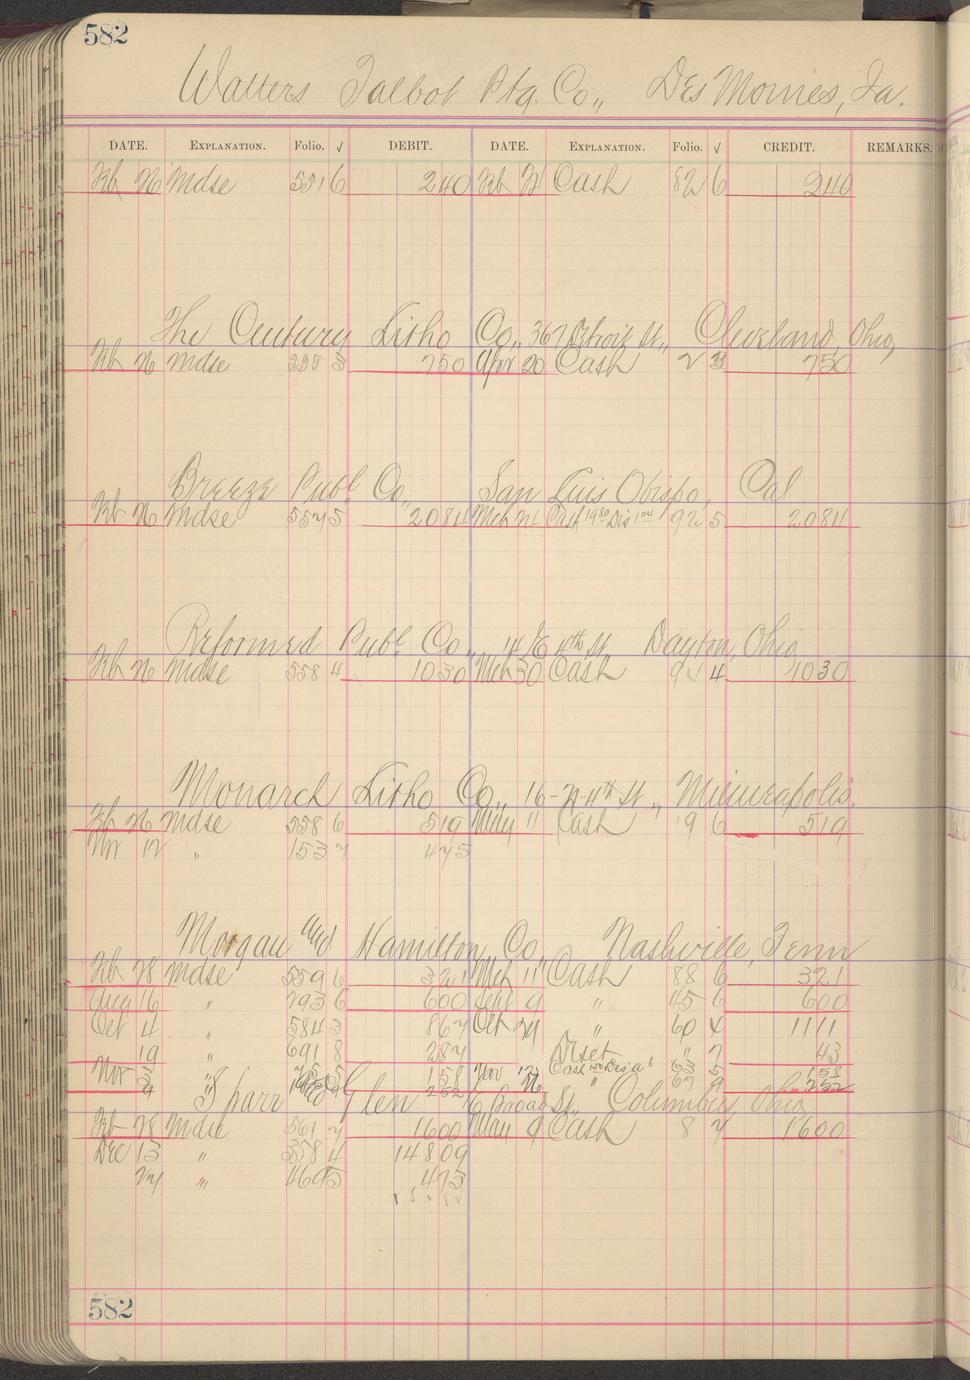 582
Walters Talbot Ptg. Co., Des Moines, Ia.
DATE. EXPLANATION. Folio. √ DEBIT. DATE. EXPLANATION. Folio. √ CREDIT. REMARKS.
Feb 26 Mdse 551 6 240 Feb Cash 82 6 240
The Century Litho Co., 367 Detroit St., Cleveland, Ohio,
Feb 26 Mdse 555 3 750 Apr 20 Cash 2 3 750
Breeze Publ Co., San Luis Obispo, Cal
Feb 26 Mdse 557 5 2084 Mch 24 Cash 19 80 Dis 1 04 92 5 2084
Reformed Publ. Co., 14/6 4th St. Dayton, Ohio
Feb 26 Mdse 558 4 1030 Mch 30 Cash 95 4 1030
Monarch Litho Co., 16-2-4th St., Minneapolis.
Feb 26 Mdse 558 6 519 May 11 Cash 9 6 519
12 " 153 7 475
Morgan and Hamilton Co., Nashville, Tenn
Feb 28 Mdse 559 6 321 Mch 11 Cash 88 6 321
Aug 16 " 293 6 600 Sept 9 " 45 6 600
Oct 4 " 584 3 867 Oct 24 " 60 4 1111
19 " 691 8 287 " 7 43
Nov 3 " 5 158 Nov Cash 63 5 158
9 " 252 " 67 9 252
Sparr and Glen 16 Broad St., Columbus, Ohio,
Feb 28 Mdse 561 7 1600 May 9 Cash 8 7 1600
Dec 13 " 358 4 14809
27 " 469 5 473
582